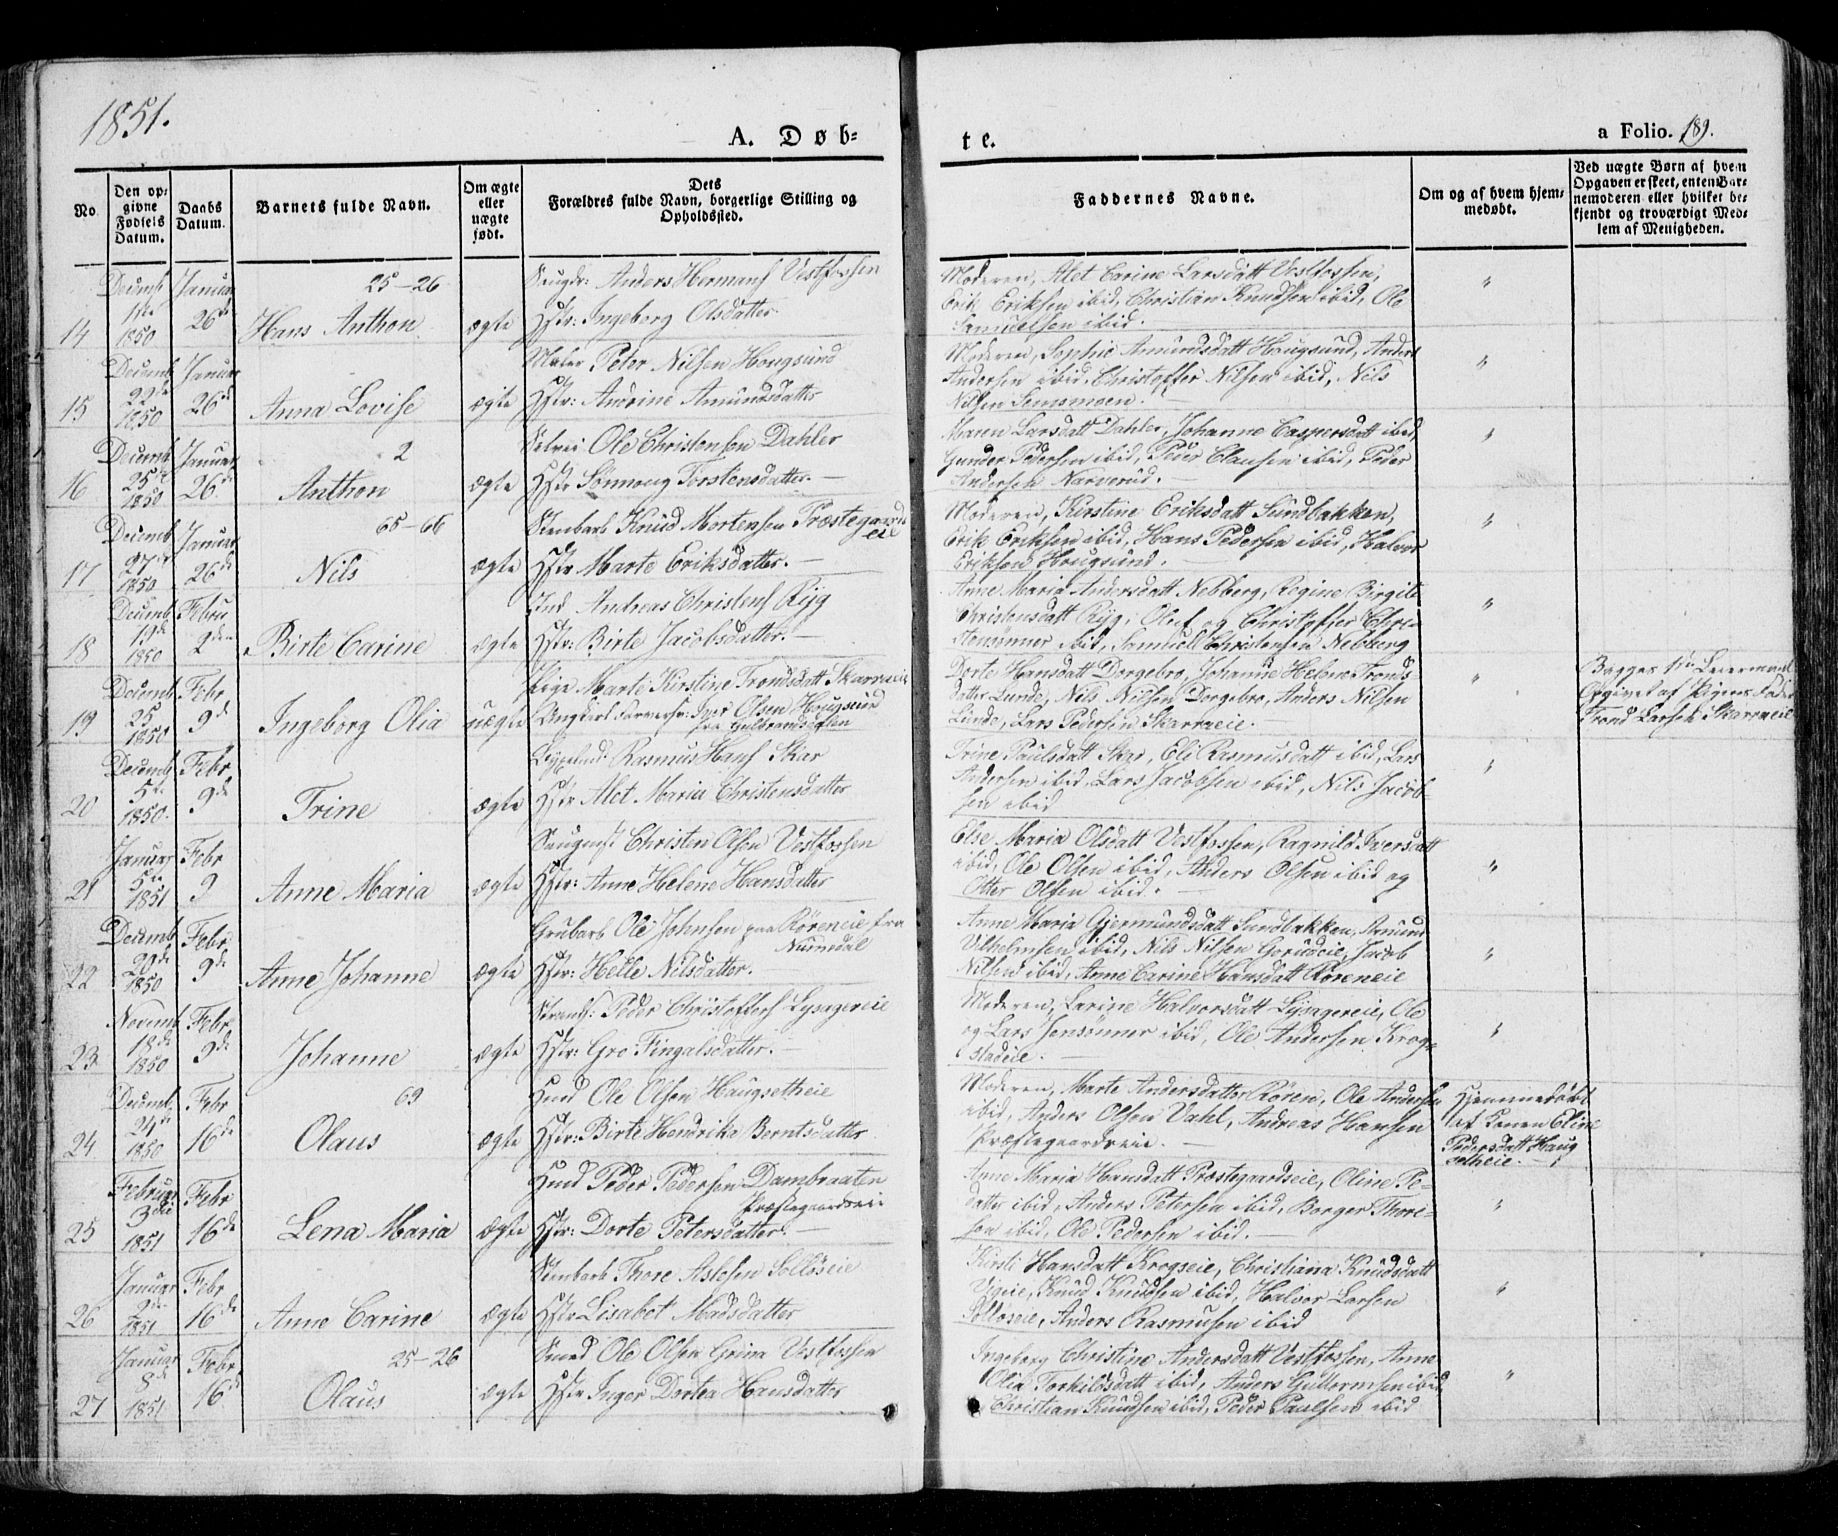 1851.
A. Døb=
te.
a Folio. 189.
No.
Den op=
givne
Fødsels
Datum.
Daabs
Datum.
Barnets fulde Navn.
Om ægte
eller
uægte
født.
Dets
Forældres fulde Navn, borgerlige Stilling og
Opholdssted.
Faddernes Navne.
Om og af hvem hjem=
medøbt.
Ved uægte Børn af hvem
Opgaven er skeet, enten Bar=
nemoderen eller hvilket be=
kjendt og troværdigt Med=
lem af Menigheden.
14
Decemb
1850
Januar
26de
25-26
Hans Anthon
ægte
Anders Hermans Vestfossen
Hstr: Ingeborg Olsdatter.
Moderen, Alet Carine Larsdatt Vestfossen,
Erik Eriksen ibid, Christian Knudsen ibid, Ole
Samuelsen ibid.
"
15
Decemb
22de
1850
Januar
26de
Anna Lovise
ægte
Maler Peter Nilsen Hougsund
Hstr: Andrine Amundsdatter
Moderen, Sophie Amundsdatt Hougsund, Anders
Andersen ibid, Christoffer Nilsen ibid, Nils
Nilsen Semsmoen.
"
16
Decemb
25de
1850
Januar
26de
2
Anthon
ægte
Selvei Ole Christensen Dahler
Hstr Sønnoug Torstensdatter. —
Maren Larsdatt Dahler, Johanne Caspersdatt ibid,
Gunder Pedersen ibid, Peder Clausen ibid, Peder
Andersen Narverud. -
"
17
Decemb
27de
1850
Januar
26de
65-66
Nils
ægte
Stenbarb Knud Mortensen Præstegaards
eie
Hstr Marte Eriksdatter. —
Moderen, Kirstine Eriksdatt Sundbakken,
Erik Eriksen ibid, Hans Pedersen ibid, Halvor
Eriksen Hougsund. -
"
18
Decemb
19de
1850
Febru
2den
Birte Carine
ægte
Ind Andreas Christens Ryg
Hstr: Birte Jacobsdatter. —
Anne Maria Andersdatt Nebberg, Regine Birgite
Christensdatt Ryg, Oluf og Christoffer Chri=
stensønner ibid, Samuel Christensen Nebberg
"
19
Decemb
25
1850
Febr
9de
Ingeborg Olia
uægte
Pige Marte Kirstine Trondsdatt Skarraeie
Ungkarl Iver Olsen Hougsund
fra Gulbrandsdalen
Dorte Hansdatt Dorgebro, Johanne Helene Tronds
datter Lunde, Nils Nilsen Dorgebro, Anders Nilsen
Lunde, Lars Pedersen Skarraeie. -
"
Begges 1ste Leiermaal
Opgivet af Pigens Fader
Trond Larsen Skarraeie
20
Decemb
5te
1850.
Febr
9de
Trine
ægte
Rasmus Hans Skar
Hstr Alet Maria Christensdatter
Trine Paulsdatt Skar, Eli Rasmusdatt ibid, Lars
Andersen ibid, Lars Jacobsen ibid, Nils Jacob=
sen ibid
"
21
Januar
5te
1851
Febr
9
Anne Maria
ægte
Christen Olsen Vestfossen
Hstr: Anne Helene Hansdatter
Else Maria Olsdatt Vestfossen, Ragnild Iversdatt
ibid, Ole Olsen ibid, Anders Olsen ibid og
Otter Olsen ibid. -
"
22
Decemb
20de
1850
Febr
9de
Anne Johanne
ægte
Grubarb Ole Johnsen paa Røreneie fra
Numedal
Hstr: Helle Nilsdatter.
Anne Maria Gjermundsdatt Sundbakken, Amund
Vilhelmsen ibid, Nils Nilsen Gorudeie, Jacob
Nilsen ibid, Anne Carine Hansdatt Røreneie
"
23
Novemb
18de
1850
Febr
9de
Johanne
ægte
Peder Christoffers Lysagereie
Hstr: Gro Fingalsdatter. —
Moderen, Larine Halvorsdatt Lysagereie, Ole
og Lars Jensønner ibid, Ole Andersen Krog=
stadeie. —
"
24
Decemb
24de
1850
Febr
16de
69
Olaus
ægte
Husd Ole Olsen Haugsetheie
Hstr: Birte Hendrika Berntsdatter
Moderen, Marte Andersdatter Røren, Ole Andersen
ibid, Anders Olsen Vahl, Andreas Hansen
Præstegaardseie. —
Hjemmedøbt
af Konen Eline
Pedersdatt Haug
setheie. —
25
Februar
3die
1851
Febr
16de
Lena Maria
ægte
Husd Peder Pedersen Dambraaten
Præstegaardseie
Hstr: Dorte Petersdatter. —
Anne Maria Hansdatt Præstegaardseie, Oline Pe=
datter ibid, Anders Petersen ibid, Borger Thore=
sen ibid, Ole Pedersen ibid. —
"
26
Januar
2den
1851
Febr
16de
Anne Carine
ægte
Stenbarb Thore Aslesen Solløseie
Hstr Lisabet Madsdatter
Kirsti Hansdatt Krogseie, Christiana Knudsdatt
Vigeie, Knud Knudsen ibid, Halvor Larsen
Solløseie, Anders Rasmusen ibid
"
27
Januar
8de
1851
Febr
16de
25-26
Olaus
ægte
Smed Ole Olsen Grina Vestfossen
Hstr Inger Dortea Hansdatter
Ingeborg Christine Andersdatt Vestfossen, Anne
Olia Torkildsdatt ibid, Anders Guttormsen ibid,
Christian Knudsen ibid, Peder Paulsen ibid
"